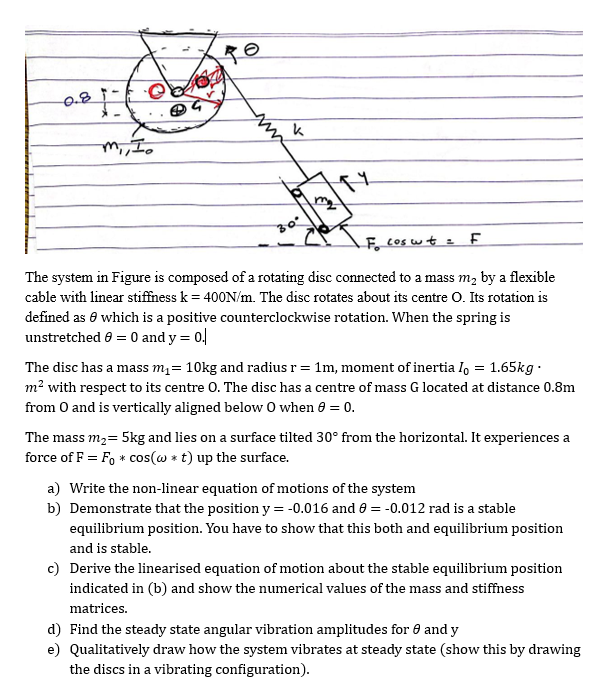 θ
0.8
r
G
m₁, I₀
k
y
m₂
30°
F₀ cos ωt = F
The system in Figure is composed of a rotating disc connected to a mass m₂ by a flexible
cable with linear stiffness k = 400N/m. The disc rotates about its centre O. Its rotation is
defined as θ which is a positive counterclockwise rotation. When the spring is
unstretched θ = 0 and y = 0.
The disc has a mass m₁= 10kg and radius r = 1m, moment of inertia I₀ = 1.65kg ·
m² with respect to its centre O. The disc has a centre of mass G located at distance 0.8m
from O and is vertically aligned below O when θ = 0.
The mass m₂= 5kg and lies on a surface tilted 30° from the horizontal. It experiences a
force of F = F₀ * cos(ω * t) up the surface.
a) Write the non-linear equation of motions of the system
b) Demonstrate that the position y = -0.016 and θ = -0.012 rad is a stable
equilibrium position. You have to show that this both and equilibrium position
and is stable.
c) Derive the linearised equation of motion about the stable equilibrium position
indicated in (b) and show the numerical values of the mass and stiffness
matrices.
d) Find the steady state angular vibration amplitudes for θ and y
e) Qualitatively draw how the system vibrates at steady state (show this by drawing
the discs in a vibrating configuration).